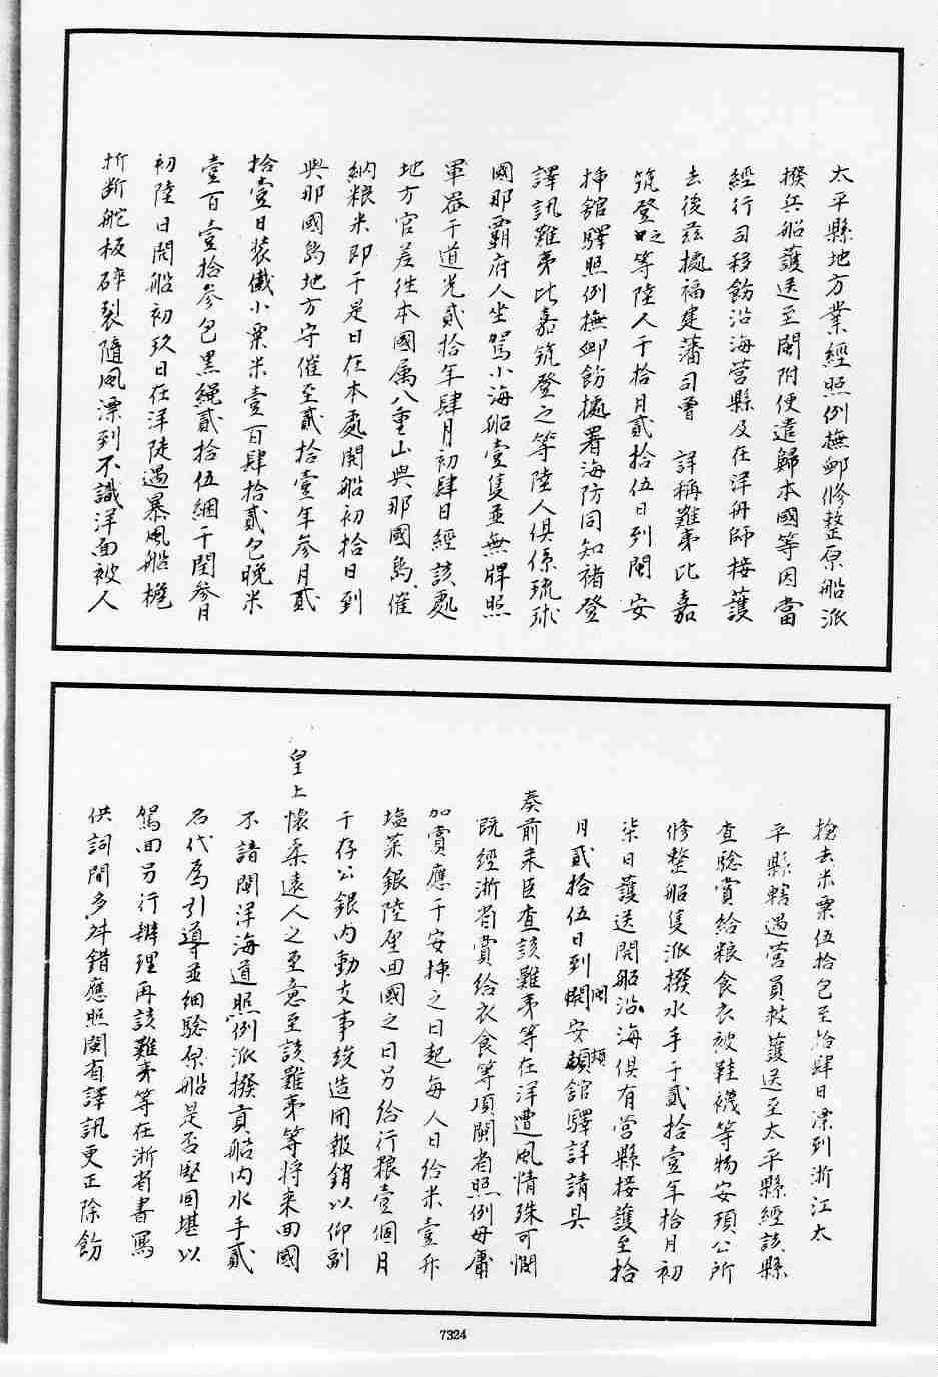 太平縣地方業經照例撫卹修整原船派
撥兵船護送至閩附便遣歸本國等因當
經行司移飭沿海營縣及在洋舟師接護
去後茲據福建藩司曾　詳稱難夷比嘉
筑登之等陸人于拾月貳拾伍日到閩安
插館驛照例撫卹飭據署海防同知褚登
譯訊難夷比嘉筑登之等陸人俱係琉球
國那霸府人坐駕小海船壹隻並無牌照
軍器于道光貳拾年肆月初肆日經該處
地方官差往本國属八重山與那國島催
納粮米即于是日在本處開船初拾日到
與那國島地方守催至貳拾壹年參月貳
拾壹日装儎小粟米壹百肆拾貳包晚米
壹百壹拾參包黑繩貳拾伍綑于閏參月
初陸日開船初玖日在洋陡遇暴風船桅
折断舵板碎裂隨風漂到不識洋面被人
搶去米粟伍拾包至拾肆日漂到浙江太
平縣轄遇營員救護送至太平縣經該縣
查驗賞給粮食衣被鞋襪等物安頓公所
修整船隻派撥水手于貳拾壹年拾月初
柒日護送開船沿海俱有營縣接護至拾
月貳拾伍日到閩安頓館驛詳請具
奏前来臣查該難夷等在洋遭風情殊可憫
既經浙省賞給衣食等項閩省照例毋庸
加賞應于安插之日起每人日給米壹升
塩菜銀陸厘回國之日另給行粮壹個月
于存公銀內動支事竣造用報銷以仰副
皇上懷柔遠人之至意至該難夷等將来回國
不諳閩洋海道照例派撥貢船內水手貳
名代爲引導並細驗原船是否堅固堪以
駕回另行辦理再該難夷等在浙省書寫
供詞間多舛錯應照閩省譯訊更正除飭
7324